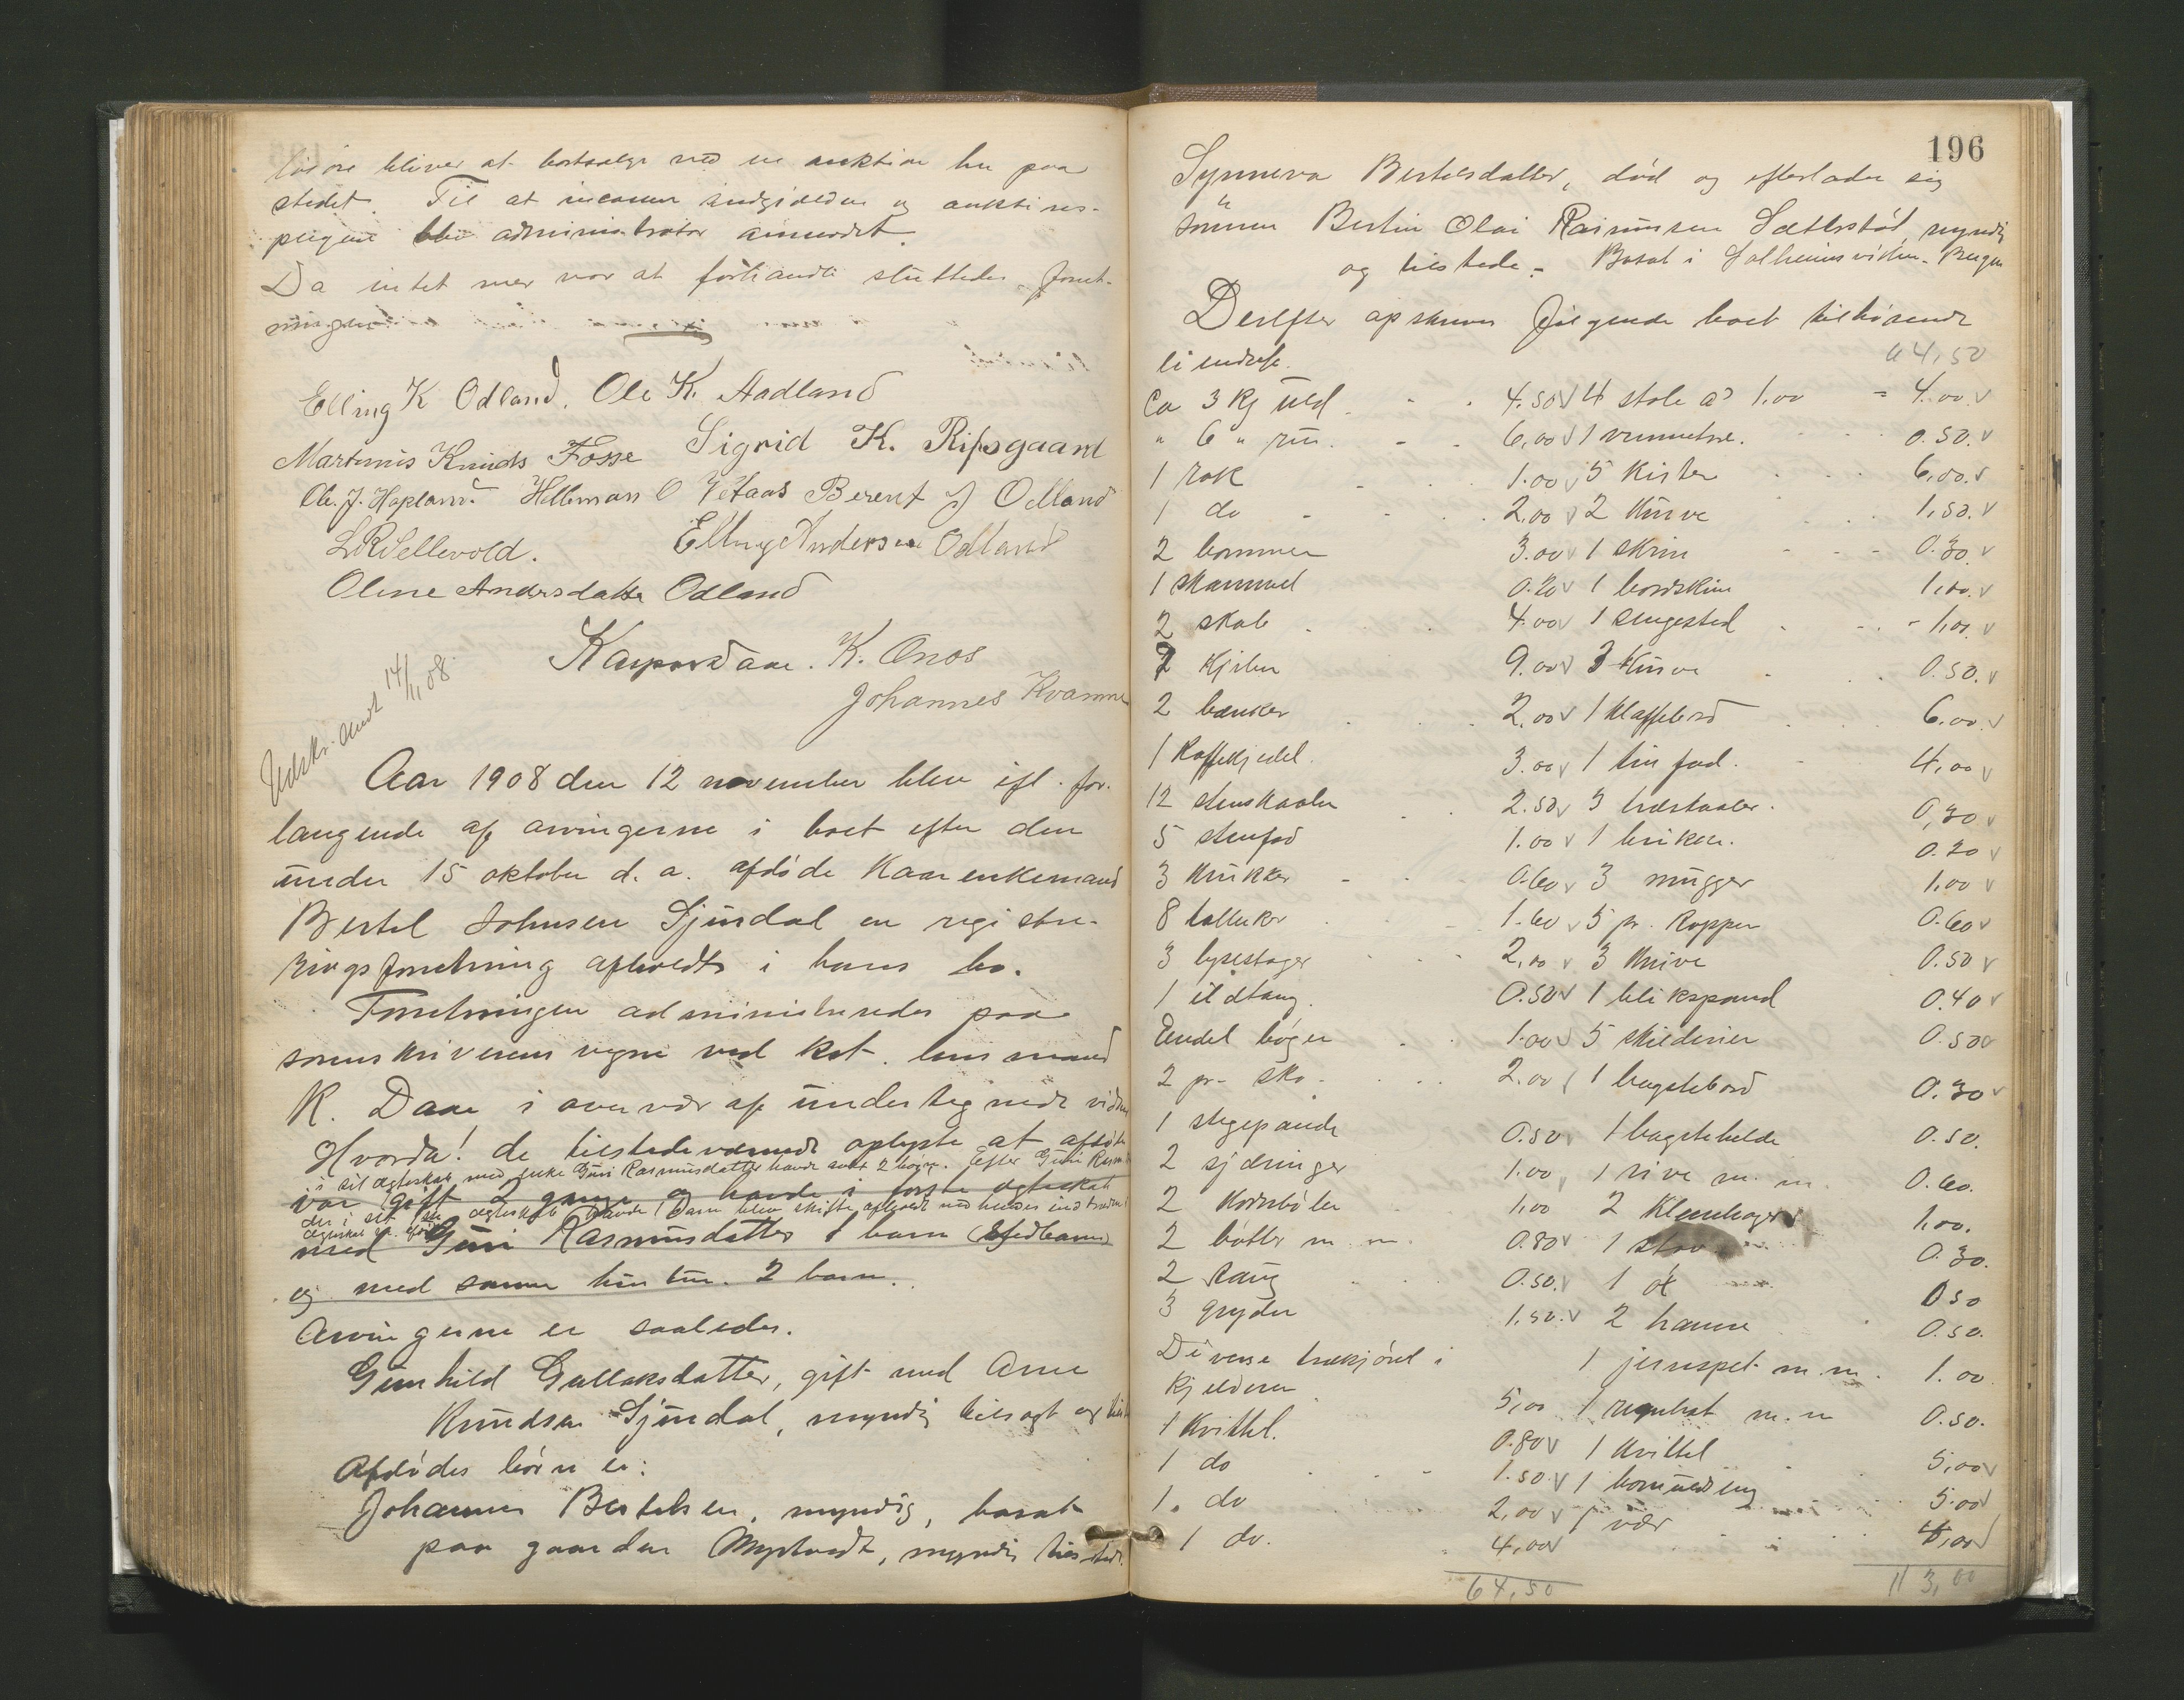 løsøre bliver at bortsælge ved en auktion her paa
stedet. Til at incassere indgjælden og auktions-
pengene blev administrator anmodet.
Da intet mer var at forhandle sluttedes forret-
ningen
Elling K Odland. Ole K. Aadland
Martinus Knuds Fosse Sigrid K. Ripsgaard
Ole. J. Hopland. Helleman O Vetaas Berent J Odland
L R Sellevold. Elling Andersen Odland
Oline Andersdatter Odland
Kasper Daae. K. Onos
Johannes Kvamme
Udskr. Amt 14/11 08.
Aar 1908 den 12 november blev efl. for-
langende af arvingerne i boet efter den
under 15 oktober d. a. afdøde Kaarenkemand
Bertel Johnsen Sjursdal en registre-
ringsforretning afholdt i hans bo.
Forretningen administreredes paa
sorenskriverens vegne ved kst. lensmand
K. Daae i overvær af undertegnede vidner
Hvorda! de tilstedeværende oplyste at afdøde
i sit ægteskab med enke Guri Rasmusdatter havde 2 børn. Efter Guri Rasm
var gift 2 gange og havde i første ægteskab
der i sit ægteskab havde 1 Barn blev skifte afholdt
med Guri Rasmusdatter 1 barn (Stedbarn)
og med samme hustru. 2 barn.
Arvingerne er saaledes.
Gunhild Gullaksdatter, gift med Arne
Knudsen Sjursdal, myndig tilsagt og
Afdødes børn er:
Johannes Bertelsen, myndig, bosat
paa gaarden Myrtvedt, myndig tilstede.
196
Synneva Bertelsdatter, død og efterlader sig
sønnen Bertin Olai Rasmussen Sætterstøl, myndig
og tilstede. - Bosat i Solheimsviken. Bergen
Derefter opskreves følgende boet tilhørende
løsøre
64,50
Ca 3 kg uld. 4.50 v 4 stole a 1.00 = 4.00. v
" 6 " 6,00 v 1 0.50. v
1 rok 1.00 v 5 Kister 6,00. v
1 do 2,00 v 2 Kurve 1,50. v
2 bommer 3.00 v 1 skrin 0.30. v
1 skammel 0.20 v 1 bordskive 1,00. v
2 skab 4.00 v 1 sengested 1,00. v
2 Kjister 9.00 v 3 Kurve 0.50. v
2 bænker 2.00 v 1 Klaffebord 6.00. v
1 Kaffekjedel. 3.00 v 1 tin fad. 4,00 v
12 stenskaaler 2.50 v 3 træskaaler. 0,30 v
5 stenfad 1.00 v 1 0.20 v
3 Krukker 0.60 v 3 mugger 1,00 v
8 tallerker 1.60 v 5 pr. Kopper 0.60 v
3 lysestager 2,00 v 3 Knive 0.50 v
1 ildtang. 0.50 v 1 blikspand 0.40 v
Endel bøger 1.00 v 5 skilderier 0.50
2 pr. sko. 2.00 1 bagstebord 0.30 v
1 stegepande 0.50 v 1 bagstehelde 0.50.
2 sjæringer 1.00 1 rive m. m. 0.60.
2 1,00 2 Kleenhager 1,00.
2 bøtter m. m. 0.80 v 1 stav 0.30.
2 0.50. v 1 øx 0.50
3 gryder 1,50. v 2 hamre 0.50.
Diverse trækjørel i 1 jernspet m.m. 1.00
Kjelderen 5,00 1 m. m 0.50.
1 Kvittel. 0.80 v 1 Kvittel 5,00 v
1 do 1.50. v 1 bomuldseng 5.00
1. do 2,00 v 1 vær 5,00
1 do. 4,00
64,50 113,00